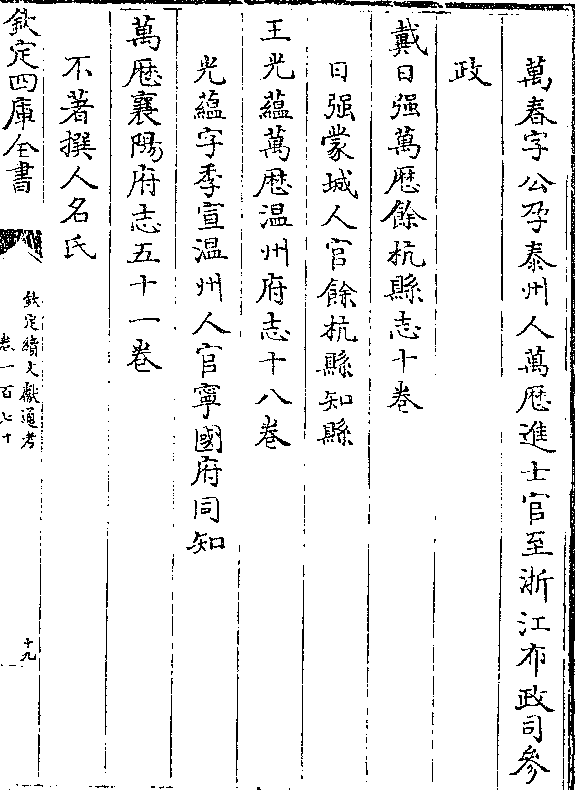 萬春字公孕泰州人萬厯進士官至浙江布政司參
政
戴日强萬厯餘杭縣志十卷
日强蒙城人官餘杭縣知縣
王光藴萬厯温州府志十八卷
光藴字季宣温州人官寧國府同知
萬厯襄陽府志五十一卷
不著撰人名氏
欽定四庫全書
欽定續文獻通考
卷一百七十
十九